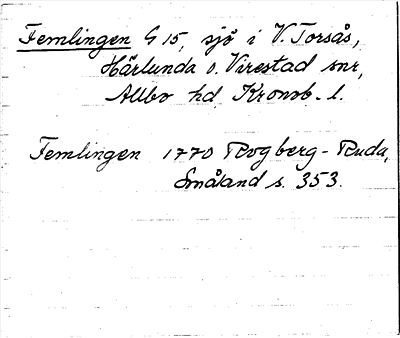 Femlingen G 15, sjö i V. Torsås,
Härlunda o. Virestad snr,
Allbo hd, Kronob. l.
Femlingen 1770 Rogberg-Ruda,
Småland s. 353.